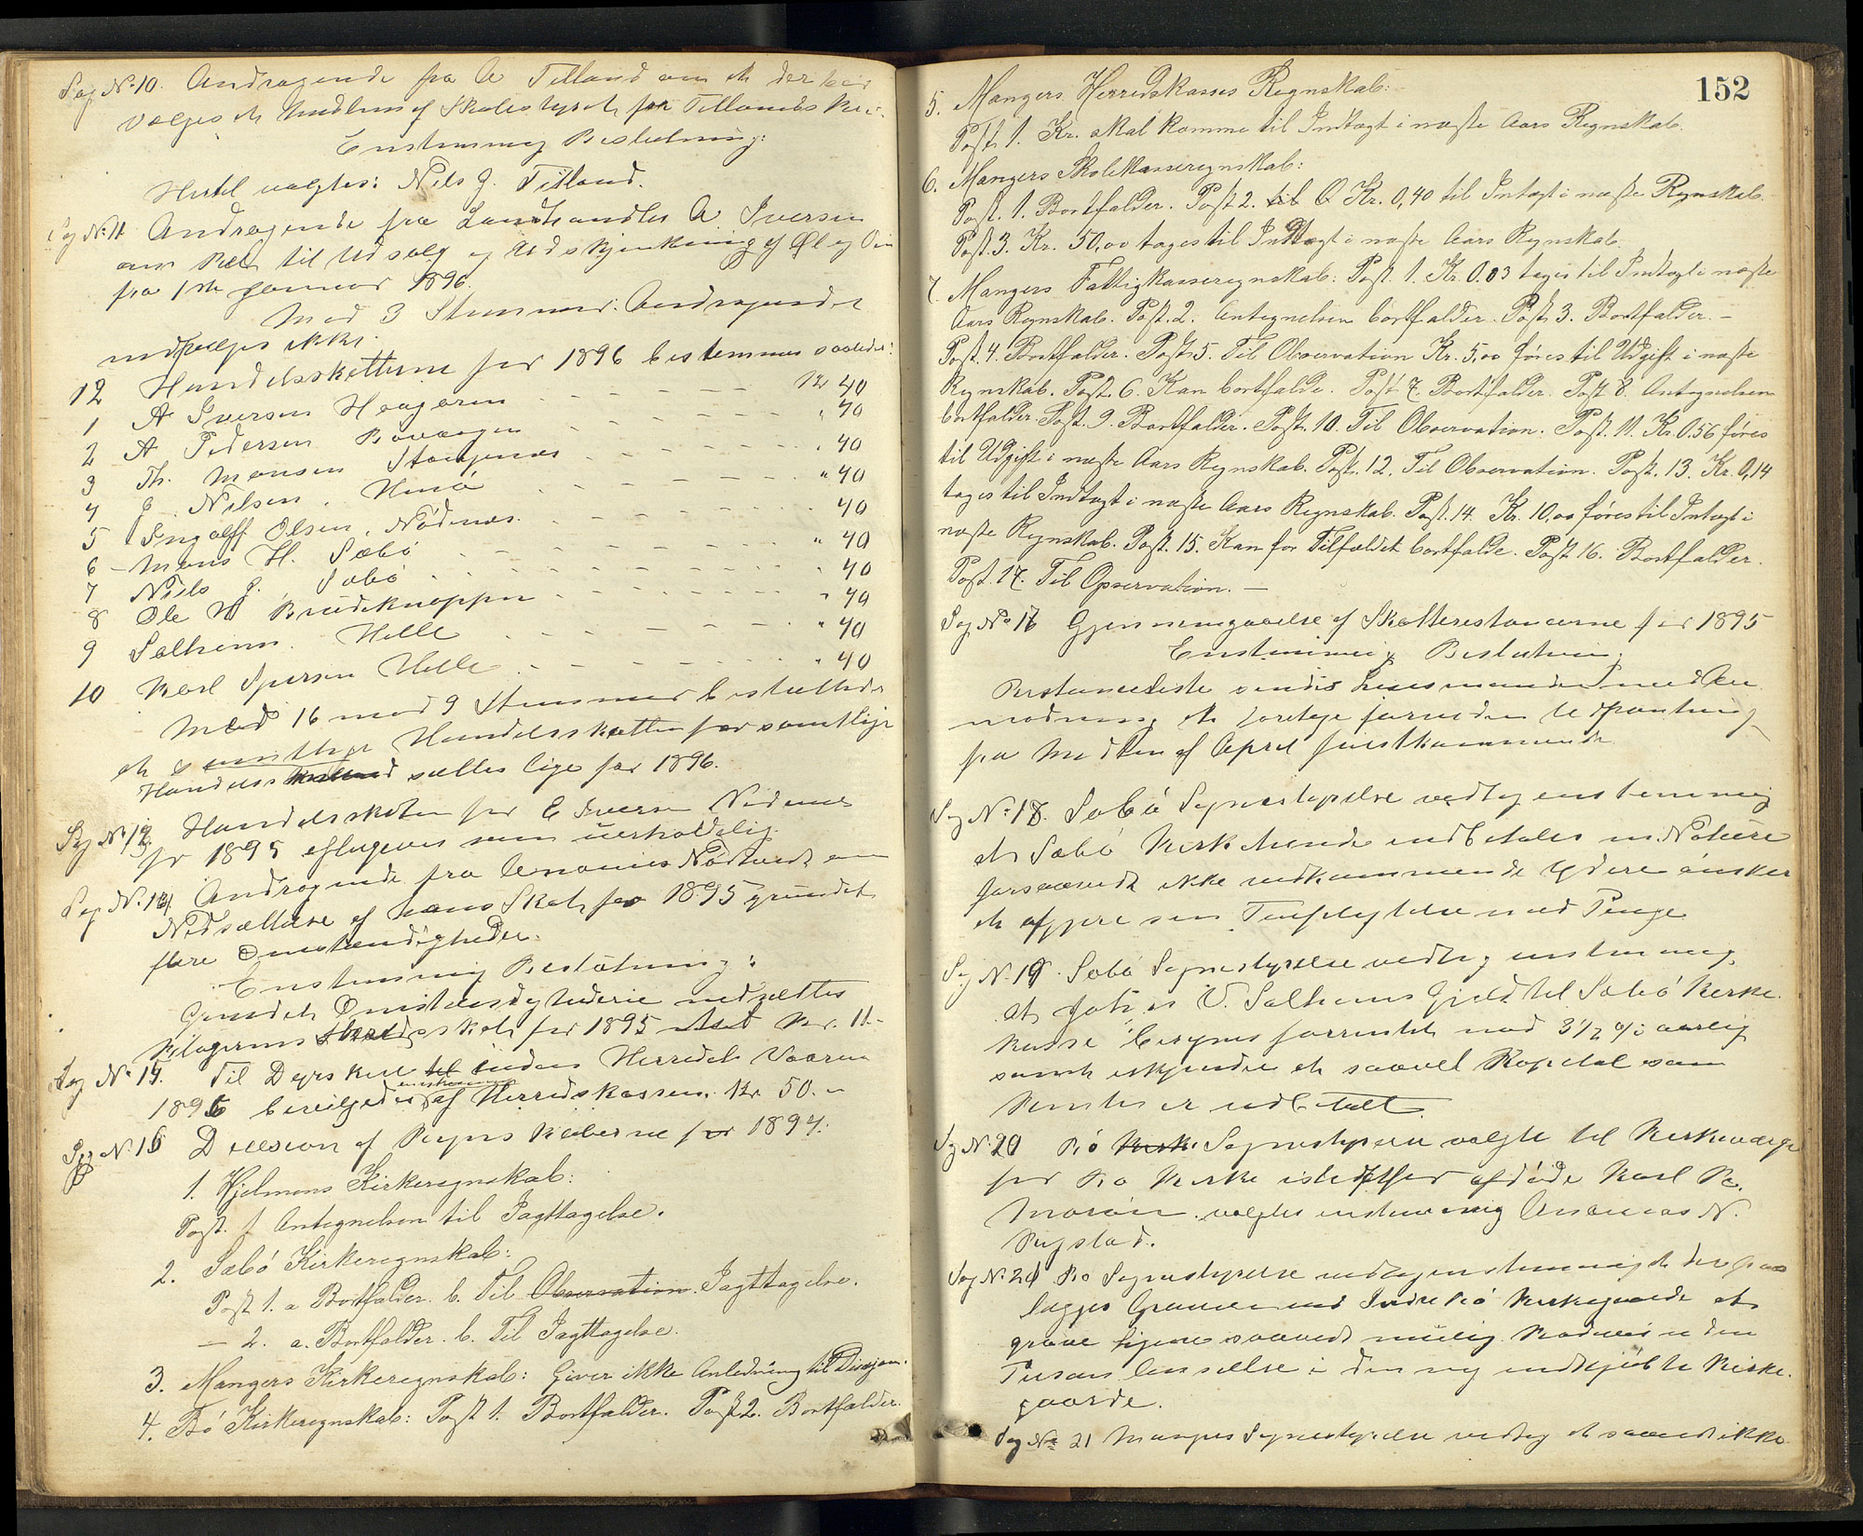 Sag No 10. Andragende fra A Tilland om at der bør
vælges et Medlem af Skolestyret for Tillands Kr..
Enstemmig Beslutning:
Hertil valgtes: Nils J. Tilland.
Sag No 11 Andragende fra Landhandler A. Iversen
om Ret til Udsalg og Udskjænkning af Øl og Vin
fra 1ste Januar 1896.
Med 3 Stemmer. Andragendet
indvilges ikke.
12 Handelsskatterne for 1896 bestemmes saaledes:
1 A Iversen Haugøren Kr 40
2 A Pedersen Bovaagen " 40
3 Th. Monsen Stangenes " 40
4 J. Nilsen, " 40
5 Ingolff Olsen, Nødenes. " 40
6 Mons H. Sæbø " 40
7 Nils J. Sæbø " 40
8 Ole N Brudeknappen " 40
9 Solheim. Helle " 40
10 Karl Iversen Helle " 40
Med 16 mod 9 Stemmer besluttedes
at Handelsskatten for samtlige
Handels sættes lige for 1896.
Sag No 13. Handelsskaten for E Iversen Nødenes
for 1895 eftergives som uerholdelig.
Sag No 14. Andragende fra Ananias Nødtvedt om
Nedsættelse af hans Skat for 1895 grundet
flere Omstændigheder.
Enstemmig Beslutning:
Grundet Omstændighederne nedsættes
Klagerens Skat for 1895 med Kr. 11.-
Sag No 15. Til Dyrskue inden Herredet Vaaren
1896 bevilgedes enstemmig af Herredskassen Kr 50.-
Sag No 16 Decision af Regnskaberne for 1894:
1. Hjelmens Kirkeregnskab:
Post. 1 Antegnelsen til Iagttagelse.
2. Sæbø Kirkeregnskab:
Post 1. a Bortfalder. b. Til Observation. Iagttagelse.
— 2. a. Bortfalder. b. Til Iagttagelse.
3. Mangers Kirkeregnskab: Giver ikke Anledning til Decisjon.
4. Bø Kirkeregnskab: Post 1. Bortfalder. Post 2. Bortfalder.
152
5. Mangers Herredskasses Regnskab:
Post 1. Kr. skal komme til Indtægt i næste Aars Regnskab.
6. Mangers Skolekasseregnskab:
Post. 1. Bortfalder. Post 2. Kr. 0,40 til Intægt i næste Regnskab.
Post 3. Kr. 50,00 tages til Indtægt i næste Aars Regnskab.
7. Mangers Fattigkasseregnskab: Post. 1. Kr. 0.03 tages til Indtægt i næste
Aars Regnskab. Post. 2. Antegnelsen bortfalder. Post 3. Bortfalder. —
Post. 4. Bortfalder. Post. 5. Til Observation Kr. 5,00 føres til Udgift i næste
Regnskab. Post 6. Kan bortfalde. Post 7. Bortfalder. Post 8. Antegnelsen
bortfalder. Post. 9. Bortfalder. Post. 10. Til Observation. Post. 11. Kr. 0.56 føres
til Udgift i næste Aars Regnskab. Post. 12. Til Observation. Post. 13. Kr. 0,14
tages til Indtægt i næste Aars Regnskab. Post. 14. Kr. 10,00 føres til Intægt i
næste Regnskab. Post. 15. Kan for Tilfældet bortfalde. Post 16. Bortfalder.
Post. 17. Til Opservation. —
Sag No 17 Gjennemgaaelse af Skatterestancerne for 1895
Enstemmig Beslutning
Restanceliste sendes Lensmanden med An-
modning at foretage fornøden Udpantning
fra Midten af April førstkommende
Sag No 18. Sæbø Sognestyrelse vedtog enstemmig
at Sæbø Kirketiende indbetales in Natura
forsaavidt ikke vedkommende Ydere ønsker
at afgjøre sin Tiendeydelse med Penge
Sag No 19. Sæbø Sognestyrelse vedtog enstemmig
at Johs V. Solheims Gjeld til Sæbø Kirke-
kasse bliver forrentet med 3 1/2 % aarlig
saavel Kapital som
Renter er indbetalt.
Sag No 20 Bø Kirke Sognestyrelse valgte til Kirkeværge
for Bø Kirke istedetfor afdøde Karl R.
valgtes enstemmig Ananias N.
Rigstad.
Sag No 21 Bø Sognestyrelse vedtog enstemmig at der paa-
lægges Graveren ved Indre Bø Kirkegaard at
grave Ligene saavidt mulig
i den ny indkjøbte Kirke-
gaarde.
Sag No 21 Mangers Sognestyrelse vedtog at saavidt ikke